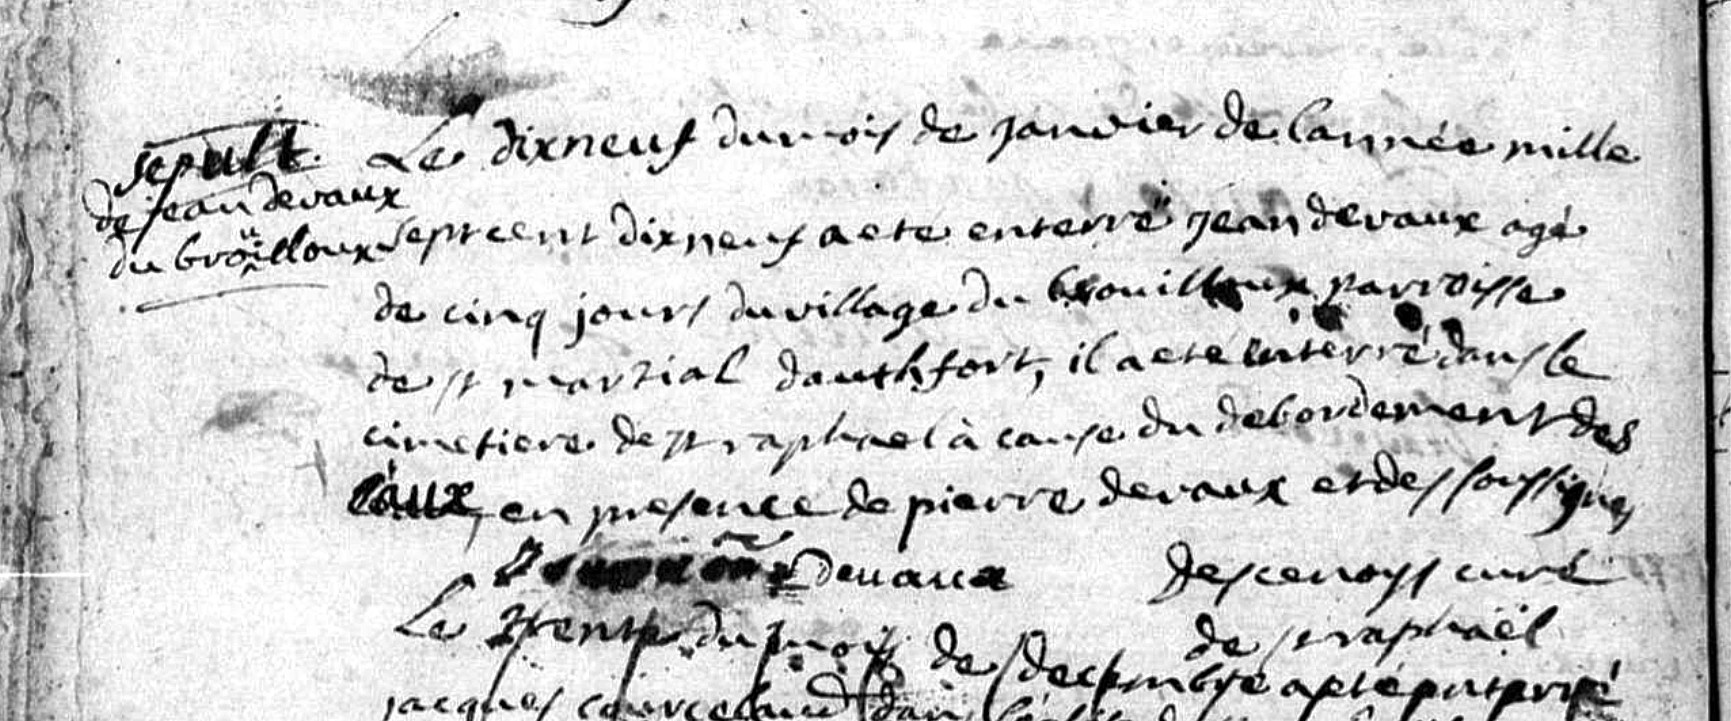 sepult.
de jean devaux
du broüilloux
Le dixneuf du mois de janvier de l'année mille
sept cent dixneuf a ete enterré jean devaux agé
de cinq jours du village du brouilloux parroisse
de st martial dauthfort, il a eté enterré dans le
cimetiere de st raphael à cause du debordement des
eaux, en presence de pierre devaux et des soussignes
devaux curé
de st raphaël
Le du mois de decembre a eté
jacques